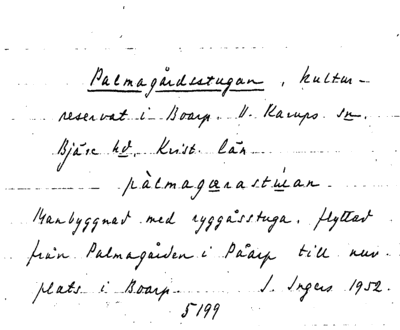 Palmagårdsstugan, kultur-
reservat i Boarp. V. Karups sn.
Bjäre hd, Krist. län
pàlmagærastúian
Manbyggnad med ryggåsstuga, flyttad
från Palmagården i Påarp till nuv.
plats i Boarp. S. Ingers 1952.
5199